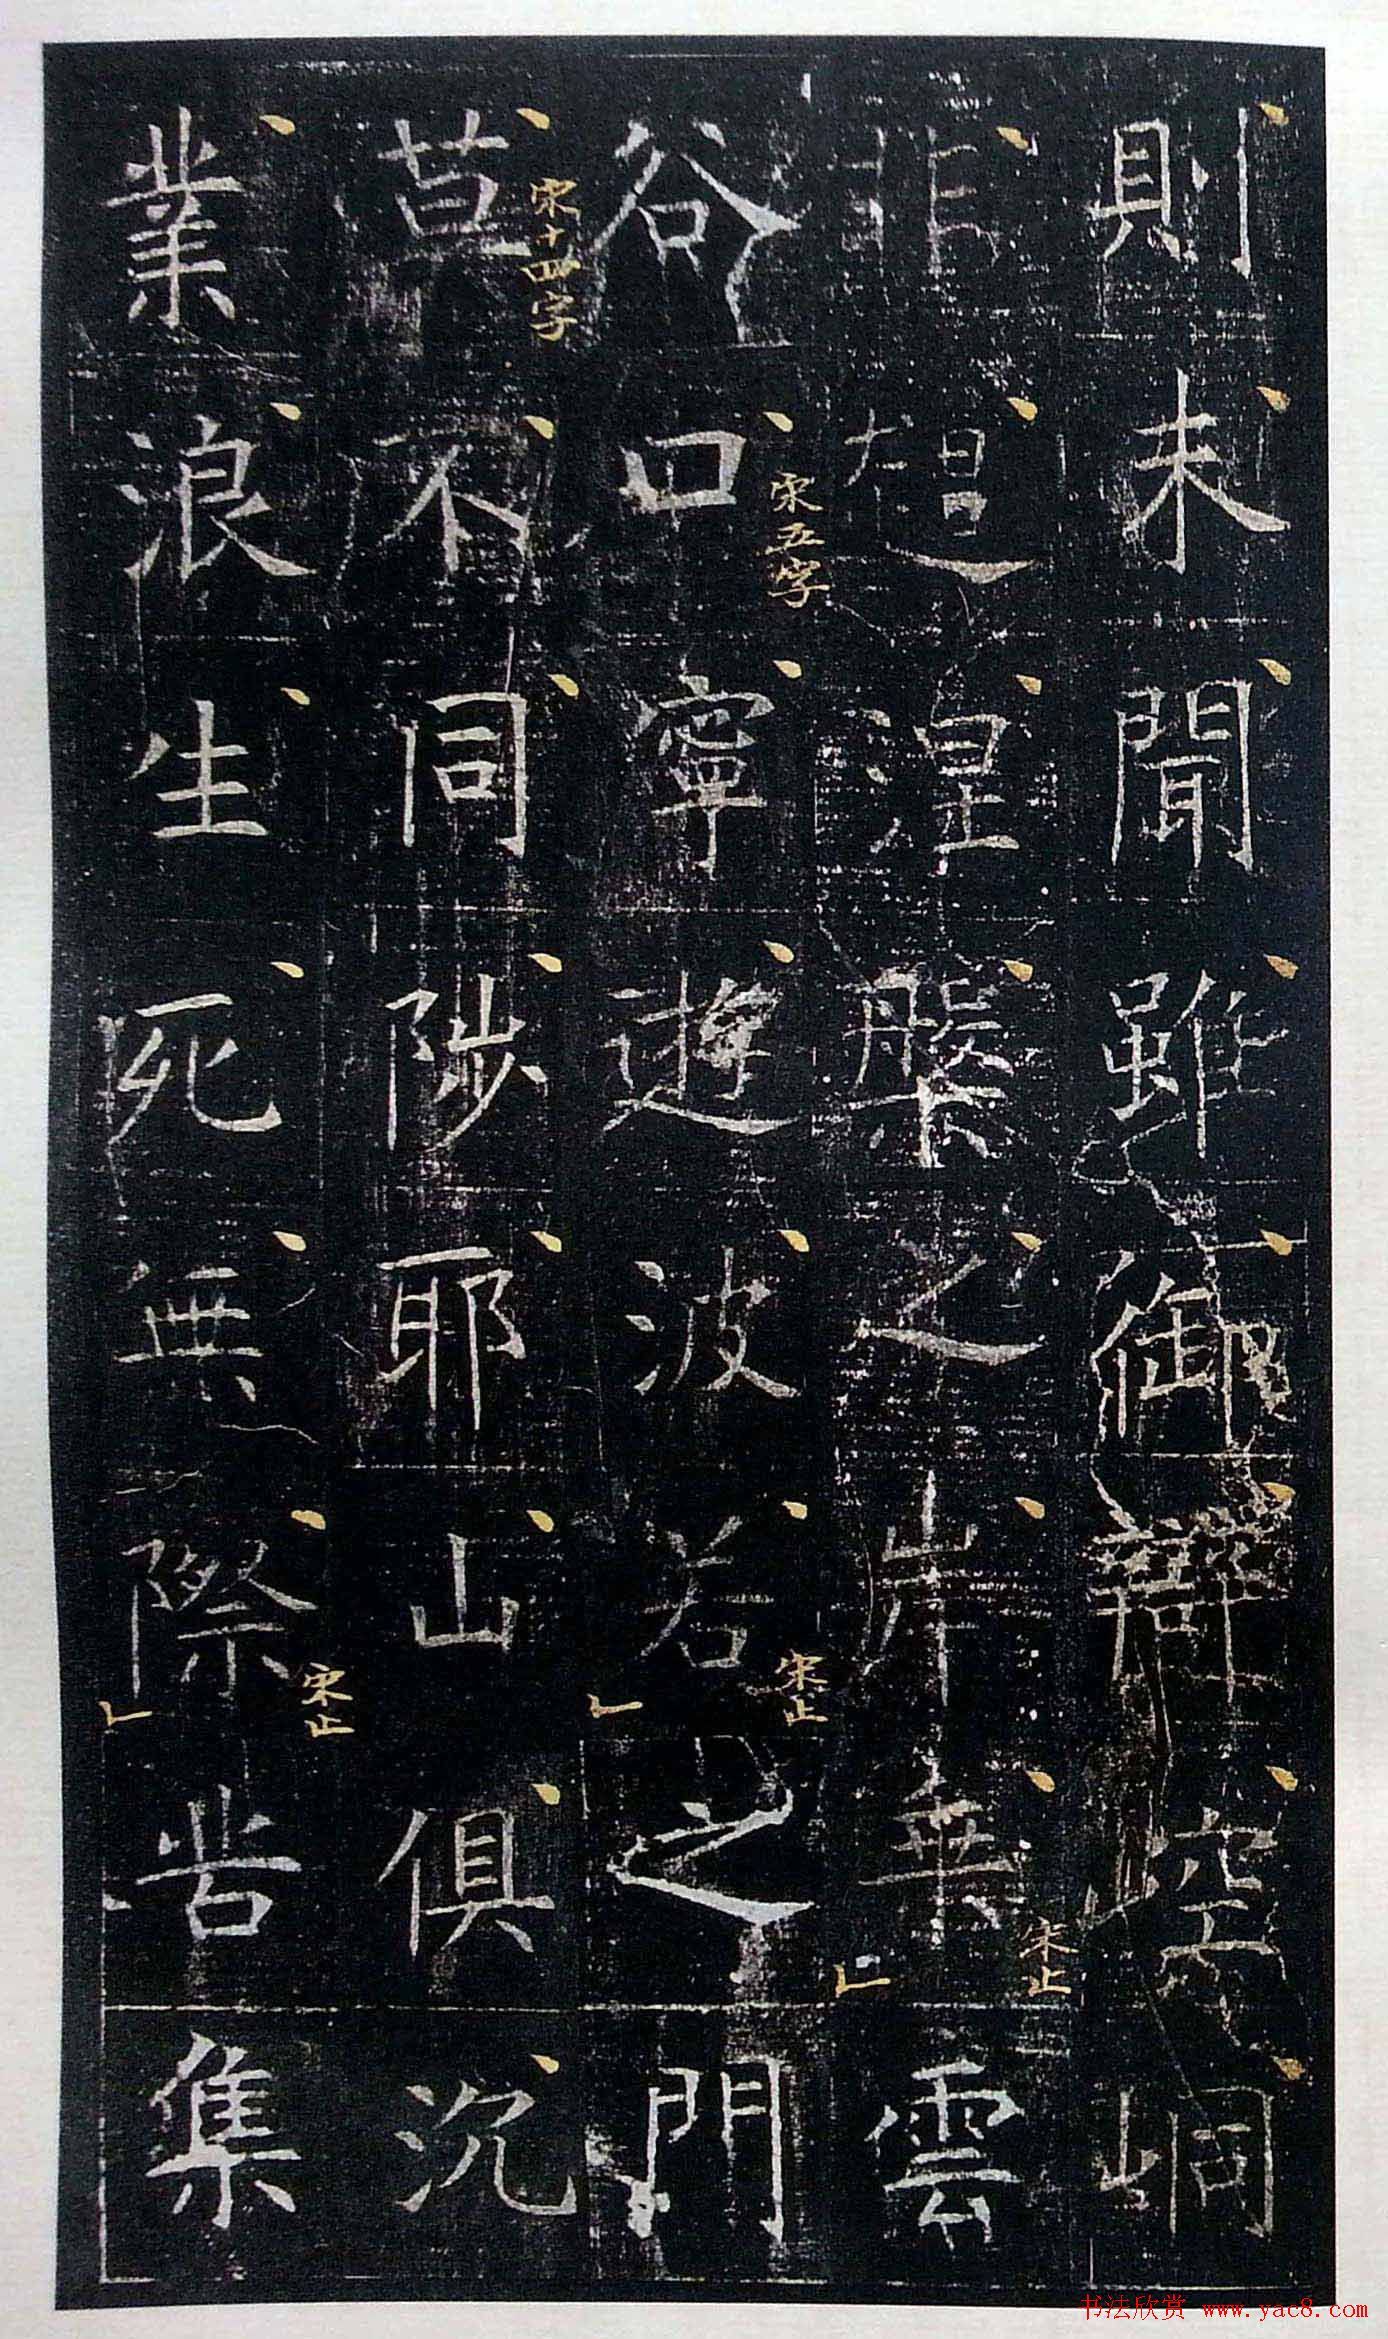 則未聞雖御辯崆峒
非超涅槃之岸無雲
宋止
谷口寧遊波若之門
宋五字
宋止
莫不同陟耶山俱沉
宋十四字
業浪生死無際苦集
宋止
书法欣赏 www.yac8.com